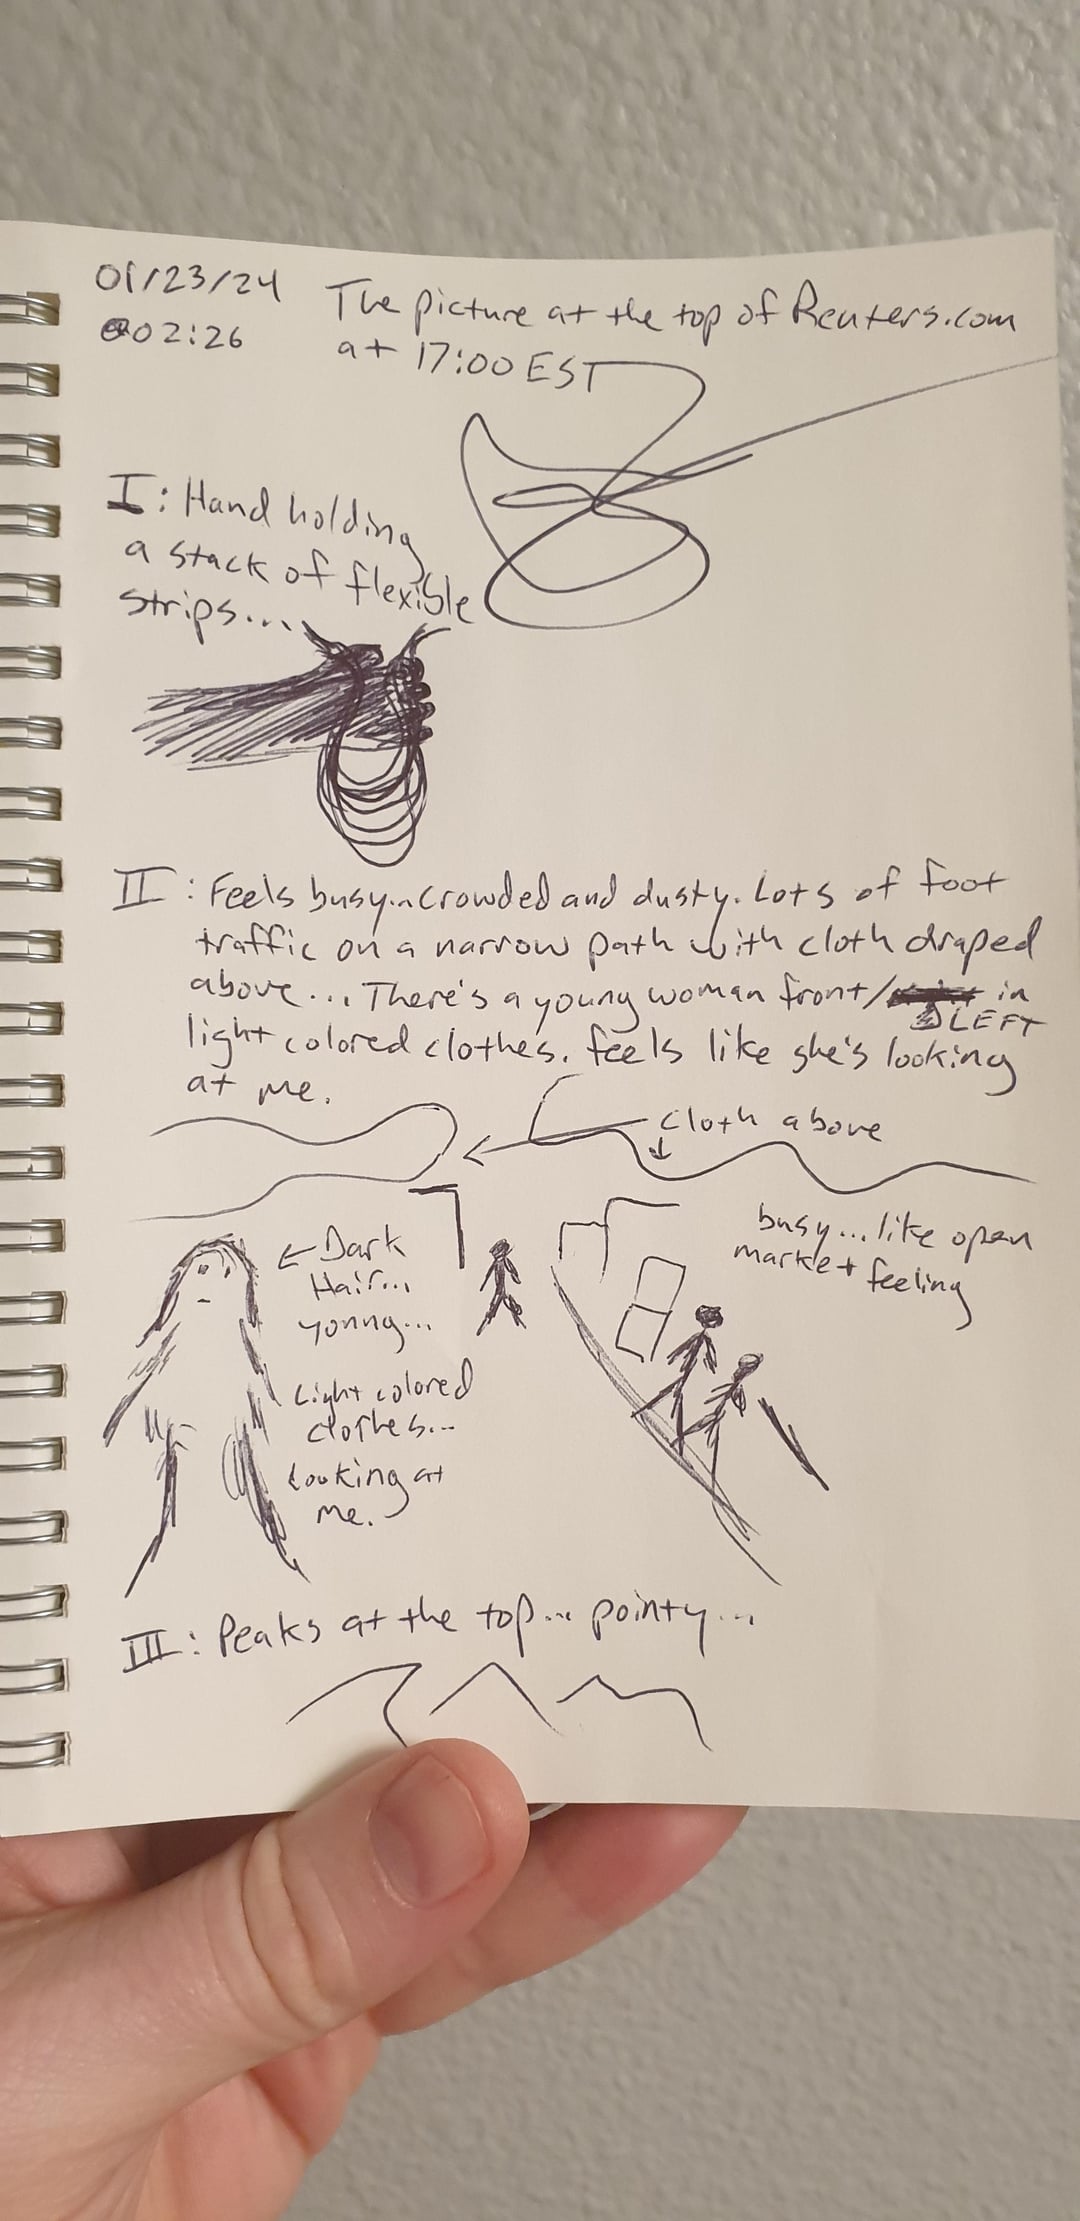 01/23/24
@02:26
The picture at the top of Reuters.com
at 17:00 EST
I: Hand holding
a stack of flexible
strips...
II: Feels busy...crowded and dusty. Lots of foot
traffic on a narrow path with cloth draped
above... There's a young woman front/ in
LEFT
light colored clothes. feels like she's looking
at me.
cloth above
← Dark
Hair...
young...
busy...like open
market feeling
Light colored
clothes...
Looking at
me.
III: Peaks at the top... pointy...